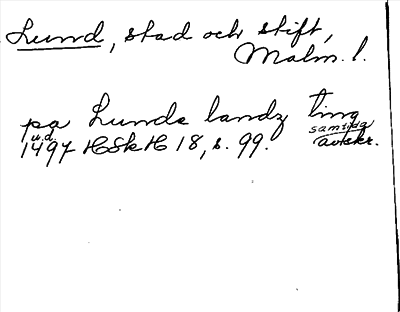 Lund, stad och stift,
Malm. l.
pa Lunds landz ting
u.d.
1497 HSkH 18, s. 99. samtida avskr.